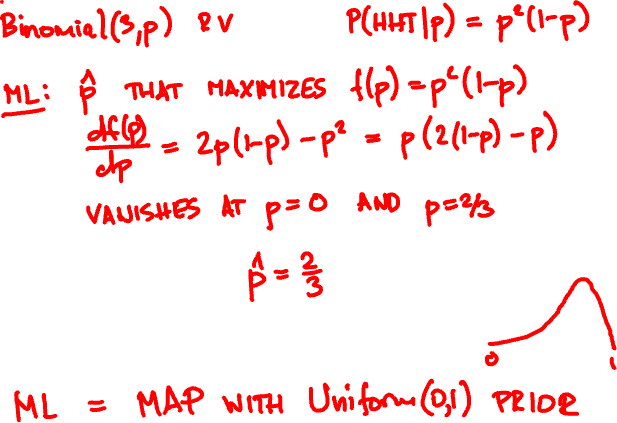 Binomial(3,p) RV P(HHT|p) = p²(1-p)
ML: p̂ THAT MAXIMIZES f(p) = p²(1-p)
df(p)/dp = 2p(1-p) - p² = p(2(1-p) - p)
VANISHES AT p=0 AND p=2/3
p̂ = 2/3
0 1
ML = MAP WITH Uniform(0,1) PRIOR